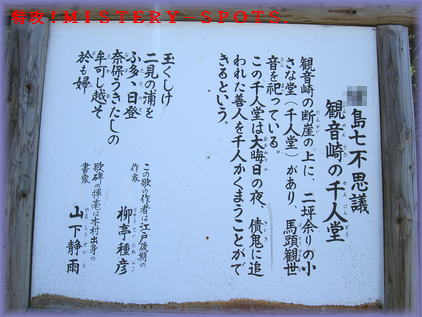 解決!MISTERY SPOTS
島七不思議
観音崎の千人堂
観音崎の断崖の上に、二坪余りの小
さな堂(千人堂)があり、馬頭観世
音を祀っている。
この千人堂は大晦日の夜、債鬼に追
われた善人を千人かくまうことがで
きるという。
玉くしけ
二見の浦を
ふ多々日登
奈保うきたしの
牟可し越そ
於も婦
この歌の作者は江戸後期の
作家
柳亭種彦
歌碑の揮毫は本村出身の
書家
山下静雨